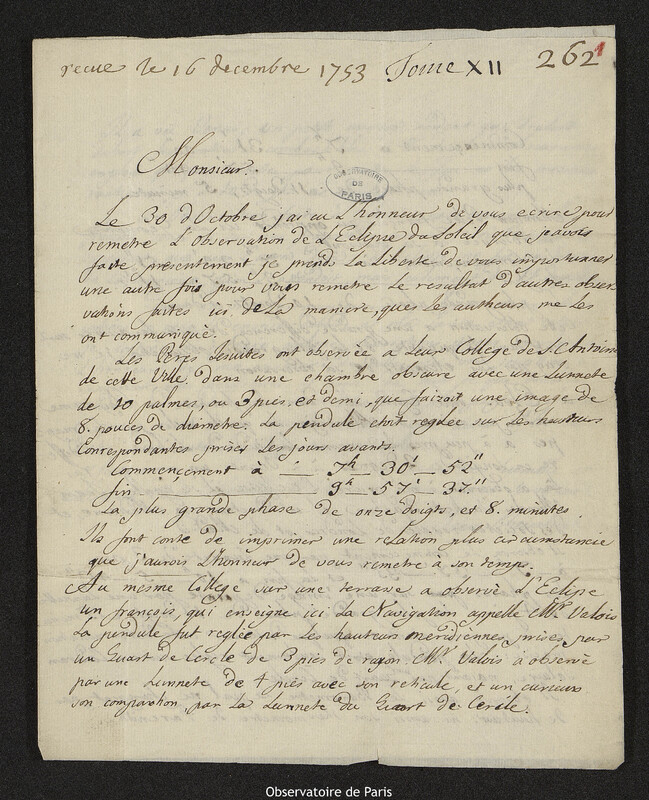 recue le 16 decembre 1753 Tome XII 262 1
Monsieur.
OBSERVATOIRE DE PARIS
Le 30 d'Octobre j'ai eu l'honneur de vous ecrire pour
remetre l'observation de l'Eclipse du Soleil que j'avois
faite presentement je prends la Liberté de vous importuner
une autre fois pour vous remetre le resultat d'autres obser
vations faites ici de la maniere, ques les autheurs me les
ont communiqué.
Les Peres Jesuites ont observée a leur College de S. Antoine
de cette Ville dans une chambre obscure avec une Lunnete
de 10 palmes, ou 3 pies, et demi, que faizoit une image de
8. pouces de diametre. La pendule etoit reglee sur les hauteurs
correspondantes prises les jours avants.
Commencement à 7h — 30' — 52''
fin 9h — 57' — 37.''
La plus grande phase de onze doigts, et 8. minutes.
Ils font conte de imprimer une relation plus circumstancié
que j'aurois l'honneur de vous remetre à son temps.
Au mesme College sur une terrasse a observé l'Eclipse
un françois, qui enseigne ici la Navigation appelle Mr. Valois
La pendule fut reglée par les hauteurs meridiennes prises par
un Quart de Cercle de 3 pies de rajon. Mr. Valois à observé
par une Lunnete de 4 piés avec son reticule, et un curieux
son comparation, par la Lunnete du Quart de Cercle.
Observatoire de Paris